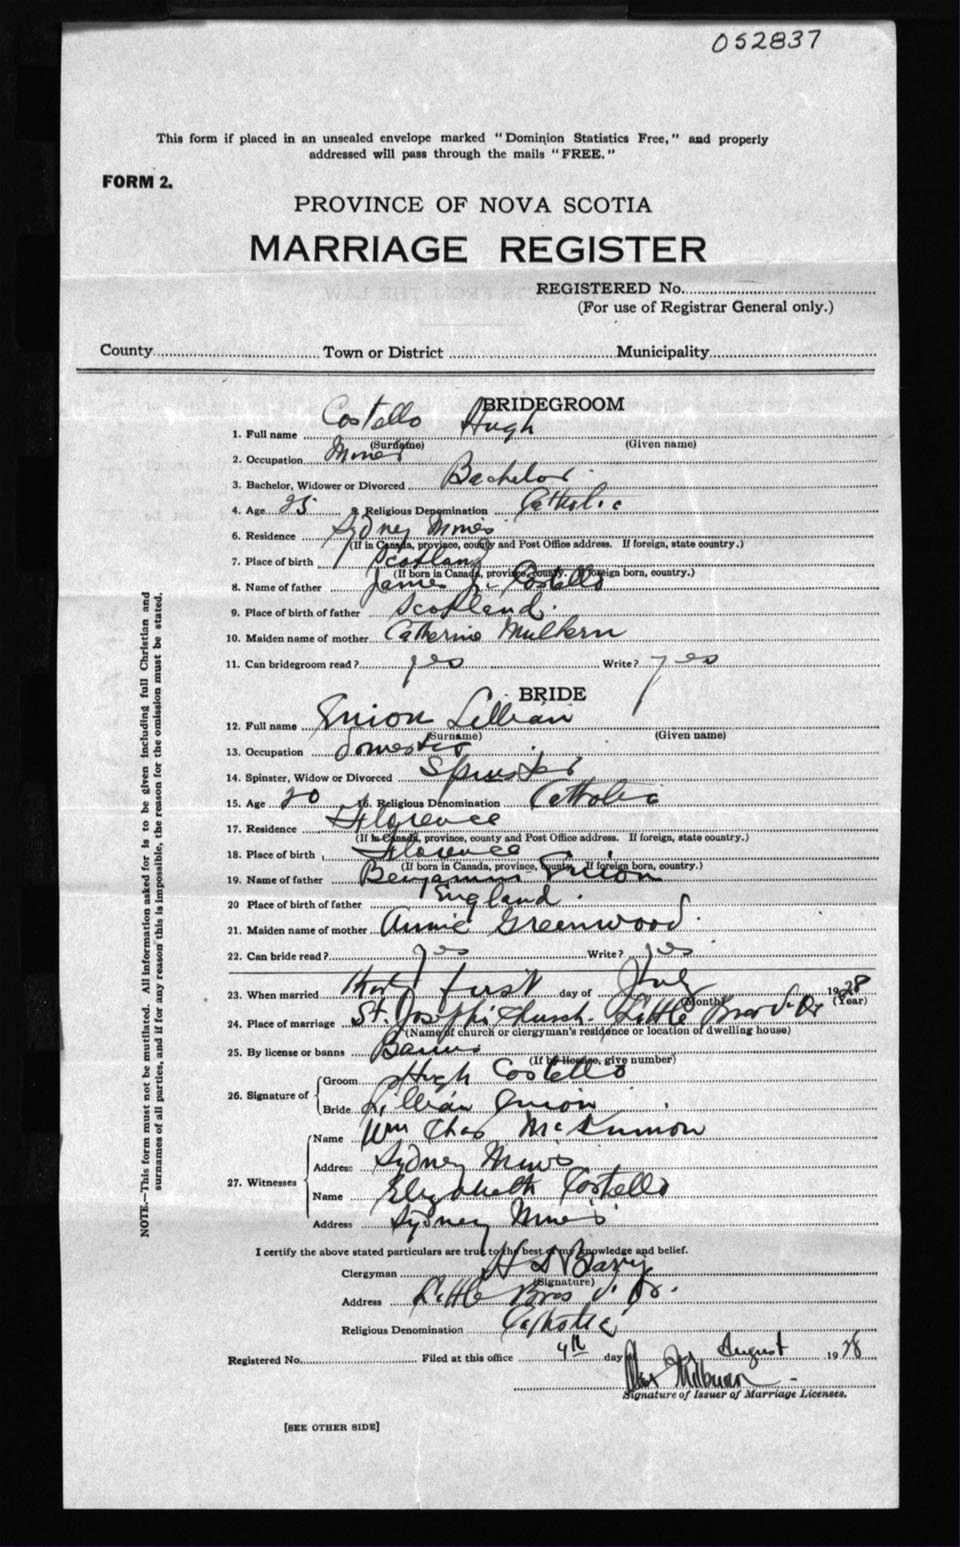 052837
This form if placed in an unsealed envelope marked "Dominion Statistics Free," and properly
addressed will pass through the mails "FREE."
FORM 2.
PROVINCE OF NOVA SCOTIA
MARRIAGE REGISTER
REGISTERED No.
(For use of Registrar General only.)
County Town or District Municipality
BRIDEGROOM
1. Full name Costello Hugh
(Surname) (Given name)
2. Occupation Miner
3. Bachelor, Widower or Divorced Bachelor
4. Age 25 5. Religious Denomination Catholic
6. Residence Sydney Mines
(If in Canada, province, county and Post Office address. If foreign, state country.)
7. Place of birth Scotland
(If born in Canada, province, county. If foreign born, country.)
8. Name of father James Costello
9. Place of birth of father Scotland.
10. Maiden name of mother Catherine Mulhern
11. Can bridegroom read? yes Write? yes
BRIDE
12. Full name Enion Lillian
(Surname) (Given name)
13. Occupation Domestic
14. Spinster, Widow or Divorced Spinster
15. Age 20 16. Religious Denomination Catholic
17. Residence Florence
(If in Canada, province, county and Post Office address. If foreign, state country.)
18. Place of birth Florence
(If born in Canada, province, county. If foreign born, country.)
19. Name of father Benjamin Enion
20 Place of birth of father England.
21. Maiden name of mother Annie Greenwood.
22. Can bride read? yes Write? yes
23. When married thirty first day of July 1928
(Month) (Year)
24. Place of marriage St. Joseph's Church. Little Bras d'Or
(Name of church or clergyman's residence or location of dwelling house)
25. By license or banns Banns
(If by license, give number)
26. Signature of Groom Hugh Costello
Bride Lillian Enion
27. Witnesses Name Wm Chas McKinnon
Address Sydney Mines
Name Elizabeth Costello
Address Sydney Mines
I certify the above stated particulars are true to the best of my knowledge and belief.
Clergyman H S Barry
(Signature)
Address Little Bras d'Or.
Religious Denomination Catholic
Registered No. Filed at this office 4th day of August 1928
Milburn
Signature of Issuer of Marriage Licenses.
[SEE OTHER SIDE]
NOTE.—This form must not be mutilated. All information asked for is to be given including full Christian and
surnames of all parties, and if for any reason this is impossible, the reason for the omission must be stated.